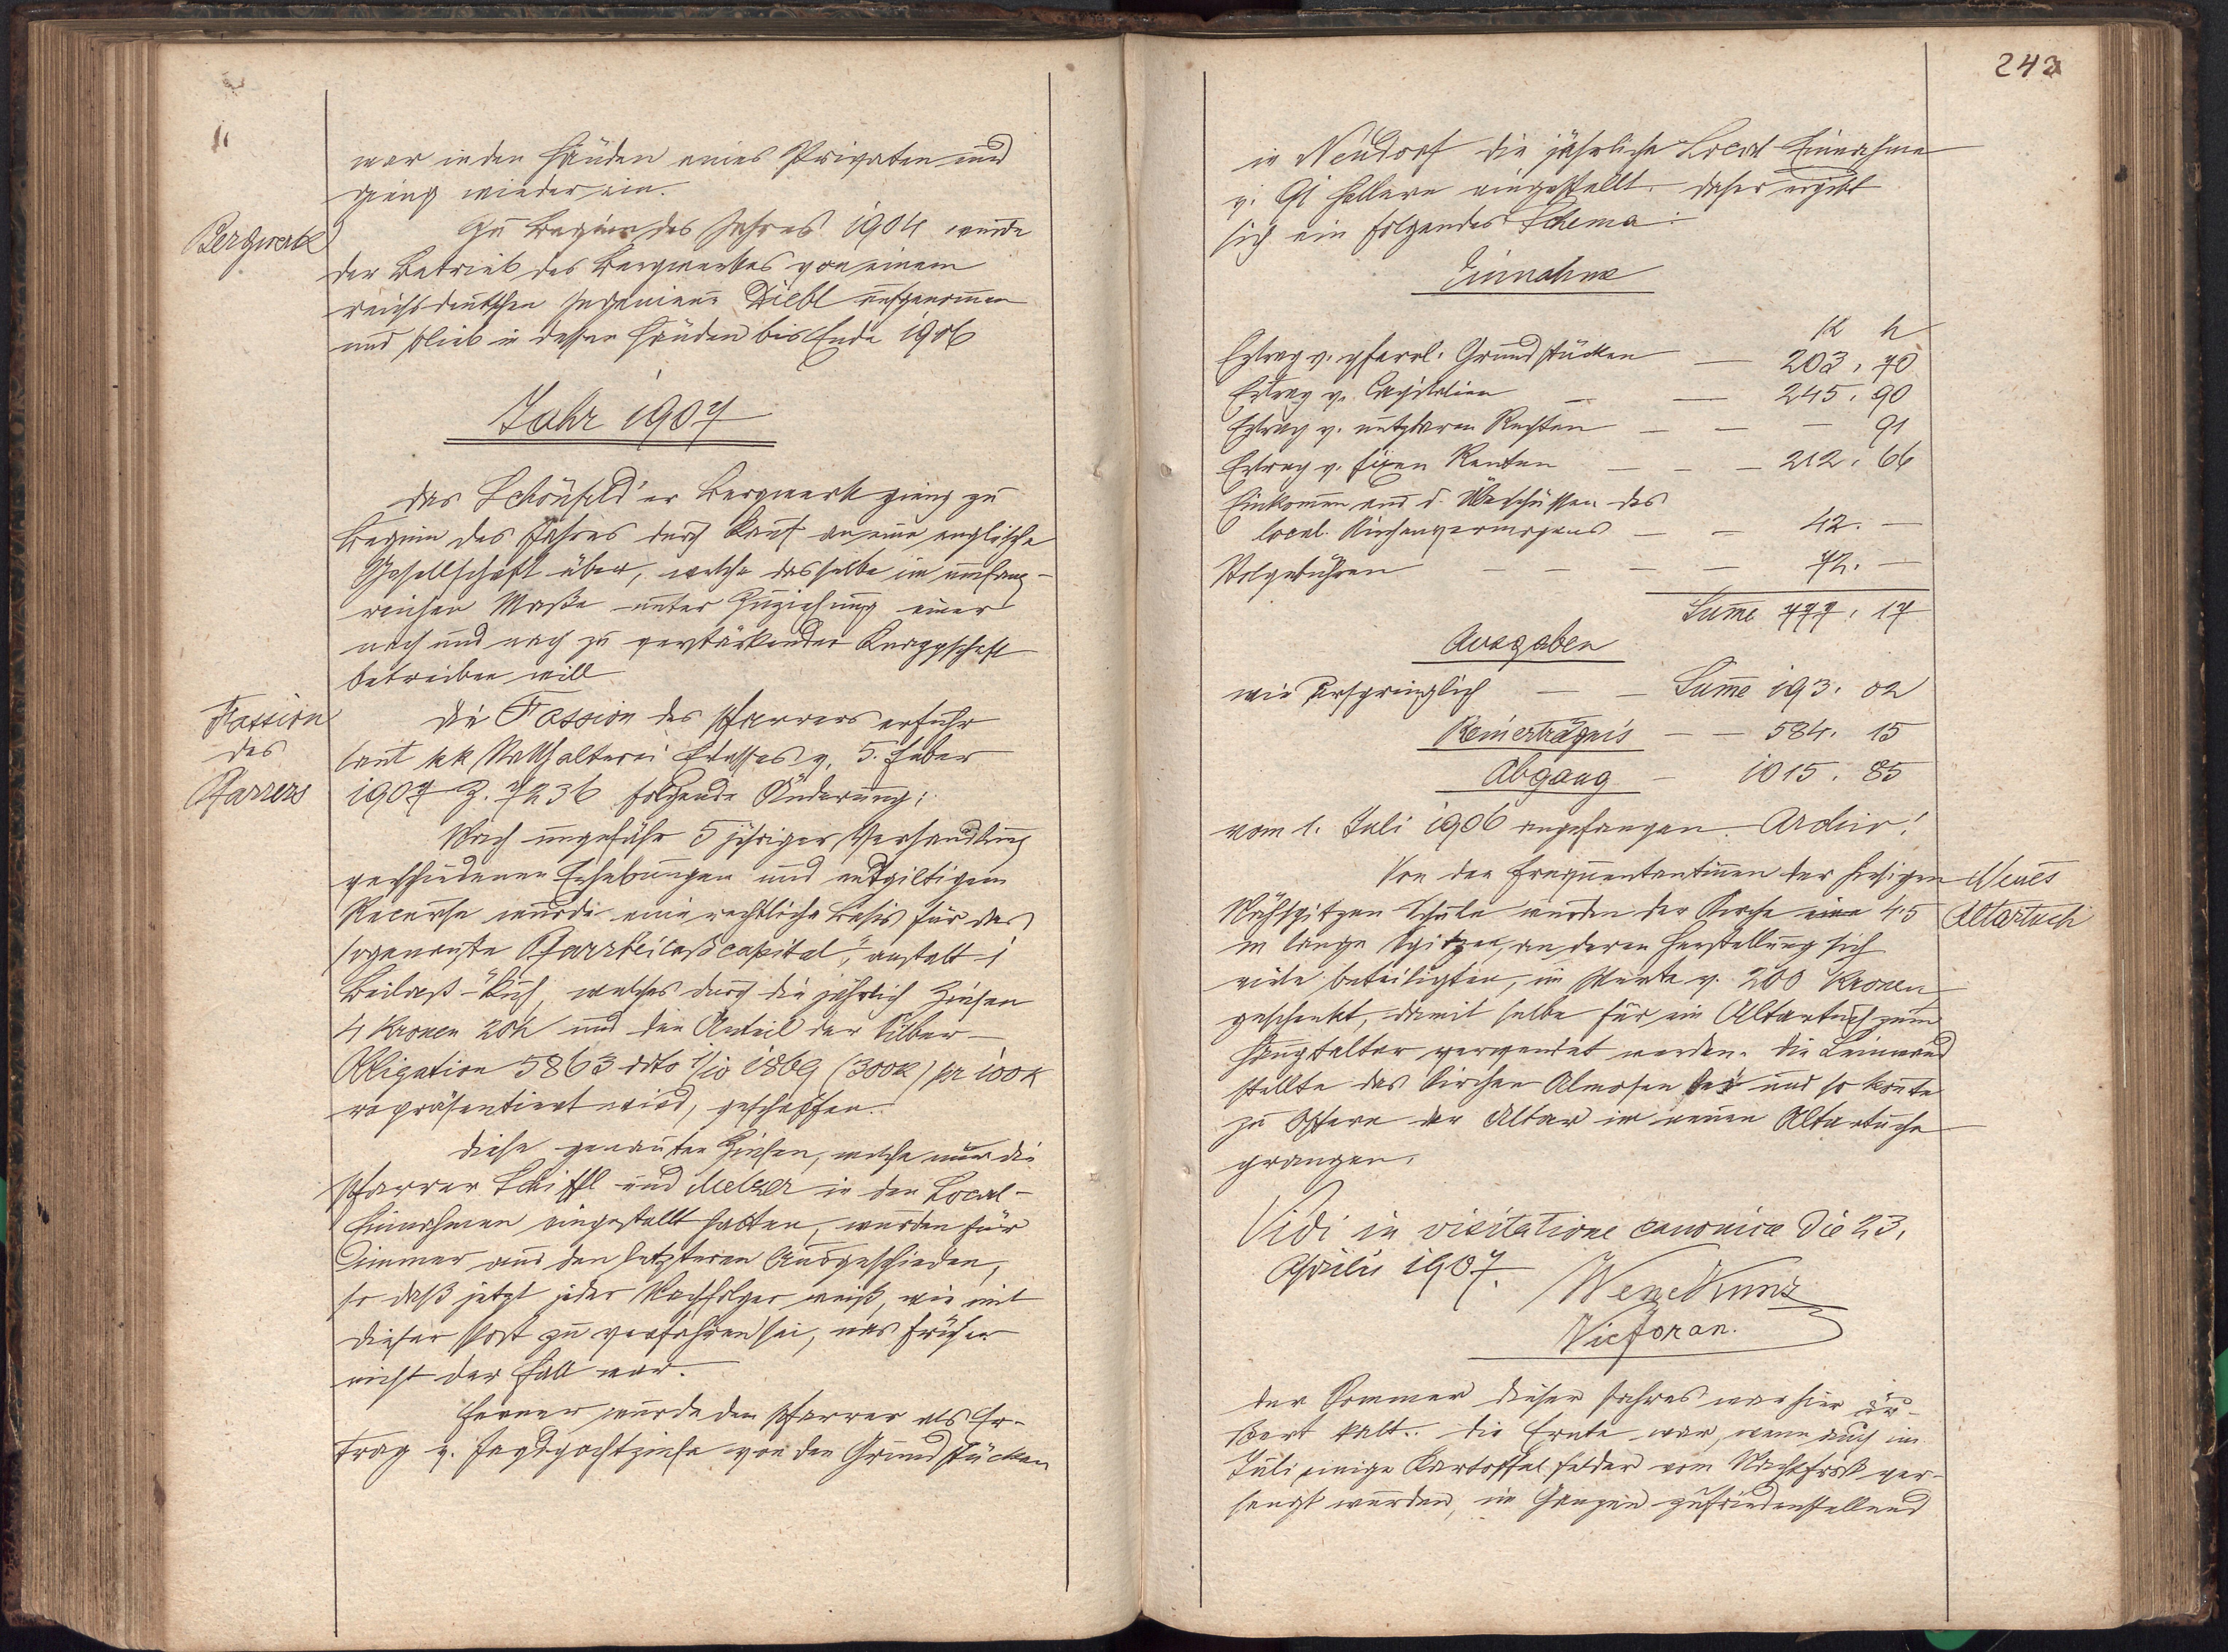 war in den Händen eines Privaten und
gieng wieder ein.
Bergwerk
Zu Beginn des Jahres 1904 wurde
der Betrieb des Bergwerkes von einem
reichsdeutschen Ingenieur Diebl aufgenommen
und blieb in dessen Händen bis Ende 1906
Jahr 1907
Das Schönfeld'er Bergwerk gieng zu
Beginn des Jahres durch Kauf an eine englische
Gesellschaft über, welche dasselbe im umfang-
reichen Maße unter Zuziehung einer
nach und nach zu verstärkender Knappschaft
betreiben will
Fassion
des
Pfarrers
Die Fassion des Pfarrers erfuhr
laut kk Statthalterei Erlasses v. 5. Feber
1907 Z. 7236 folgende Änderung:
Nach ungefähr 5 jähriger Verhandlung
verschiedenen Erhebungen und entgiltigem
Recurse wurde eine rechtliche Basis für das
sogenannte Pfarrbeilaßcapital, anstatt 1
Beilaß-Kuh, welches durch die jährlich Zinsen
4 Kronen 20h und den Anteil der Silber-
Obligation 5863 ddto 1/10 1869 (300K) pr 100K
repräsentiert wird, geschaffen.
Diese genannten Zinsen, welche nur die
Pfarrer Schiffl und Melzer in den Local-
Einnahmen eingestellt hatten, wurden für
immer aus den letzteren Ausgeschieden,
so daß jetzt jeder Nachfolger weiß, wie mit
dieser Post zu verfahren sei, was früher
nicht der Fall war.
Ferner wurde dem Pfarrer als Er-
trag v. Jagdpachtzinse von den Grundstücken
243
in Neudorf die jährliche Local Einnahme
v. 91 Hellern eingestellt. Daher ergibt
sich ein folgendes Schema:
Einnahme
K h
Ertrag v. pfarrl. Grundstücken — 203, 70
Ertrag v. Capitalien — — 245, 90
Ertrag v. nutzbaren Rechten — — — 91
Ertrag v. fixen Renten — — — 212, 66
Einkommen aus d. Überschüssen des
local. Kirchenvermögens — — 42. —
Stolgebühren — — — — 72. —
Summe 777, 17
Ausgaben
wie ursprünglich — — Summe 193. 02
Reinerträgnis — — 584. 15
Abgang — 1015. 85
vom 1. Juli 1906 angefangen. Archiv!
Neues
Altartuch
Von den Frequentantinnen der hiesigen
Nähspitzen Schule wurden der Kirche eine 4·5
m lange Spitzen, an deren Herstellung sich
viele beteiligten, im Werte v. 200 Kronen
geschenkt, damit selbe für ein Altartuch zum
Hauptaltar verwendet werden. Die Leinwand
stellte das Kirchen Almosen bei und so konnte
zu Ostern der Altar im neuen Altartuche
prangen.
Vidi in visitatione canonica die 23.
Aprilis 1907.
Wenz Kunz
Vicfor an.
Der Sommer dieses Jahres war hier äu-
ßert kalt. Die Ernte war, wenn auch im
Juli einige Kartoffelfelder vom Nachtfrost ver-
sengt wurden, im Ganzen zufriedenstellend